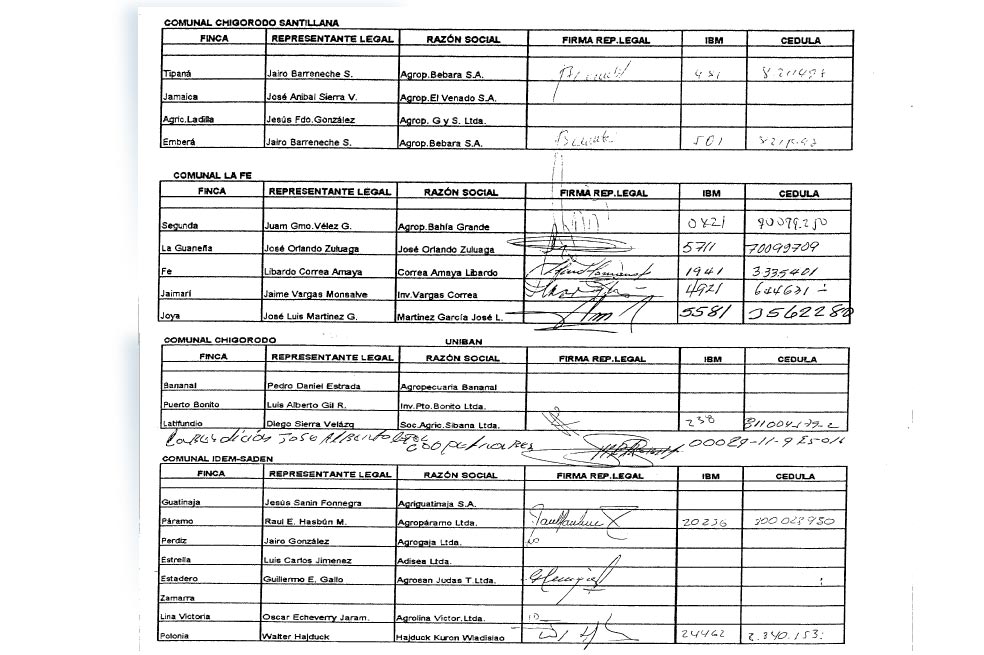 COMUNAL CHIGORODO SANTILLANA
FINCA REPRESENTANTE LEGAL RAZÓN SOCIAL FIRMA REP.LEGAL IBM CEDULA
Tipaná Jairo Barreneche S. Agrop.Bebara S.A. 481
Jamaica José Anibal Sierra V. Agrop.El Venado S.A.
Agric.Ladilla Jesús Fdo.González Agrop. G y S. Ltda.
Emberá Jairo Barreneche S. Agrop.Bebara S.A. 501
COMUNAL LA FE
FINCA REPRESENTANTE LEGAL RAZÓN SOCIAL FIRMA REP.LEGAL IBM CEDULA
Segunda Juam Gmo.Vélez G. Agrop.Bahía Grande 0421
La Guaneña José Orlando Zuluaga José Orlando Zuluaga 5711 70099709
Fe Libardo Correa Amaya Correa Amaya Libardo 1941 3335401
Jaimarí Jaime Vargas Monsalve Inv.Vargas Correa 4921
Joya José Luis Martínez G. Martínez García José L. 5581 3562280
COMUNAL CHIGORODO UNIBAN
FINCA REPRESENTANTE LEGAL RAZÓN SOCIAL FIRMA REP.LEGAL IBM CEDULA
Bananal Pedro Daniel Estrada Agropecuaria Bananal
Puerto Bonito Luis Alberto Gil R. Inv.Pto.Bonito Ltda.
Latifundio Diego Sierra Velázq Soc.Agric.Sibana Ltda. 238
José Alberto
COMUNAL IDEM-SADEN
FINCA REPRESENTANTE LEGAL RAZÓN SOCIAL FIRMA REP.LEGAL IBM CEDULA
Guatinaja Jesús Sanin Fonnegra Agriguatinaja S.A.
Páramo Raul E. Hasbún M. Agropáramo Ltda. 20236
Perdiz Jairo González Agrogaja Ltda.
Estrella Luis Carlos Jimenez Adisea Ltda.
Estadero Guillermo E. Gallo Agrosan Judas T.Ltda.
Zamarra
Lina Victoria Oscar Echeverry Jaram. Agrolina Victor.Ltda.
Polonia Walter Hajduck Hajduck Kuron Wladislao 24462 2.340.153